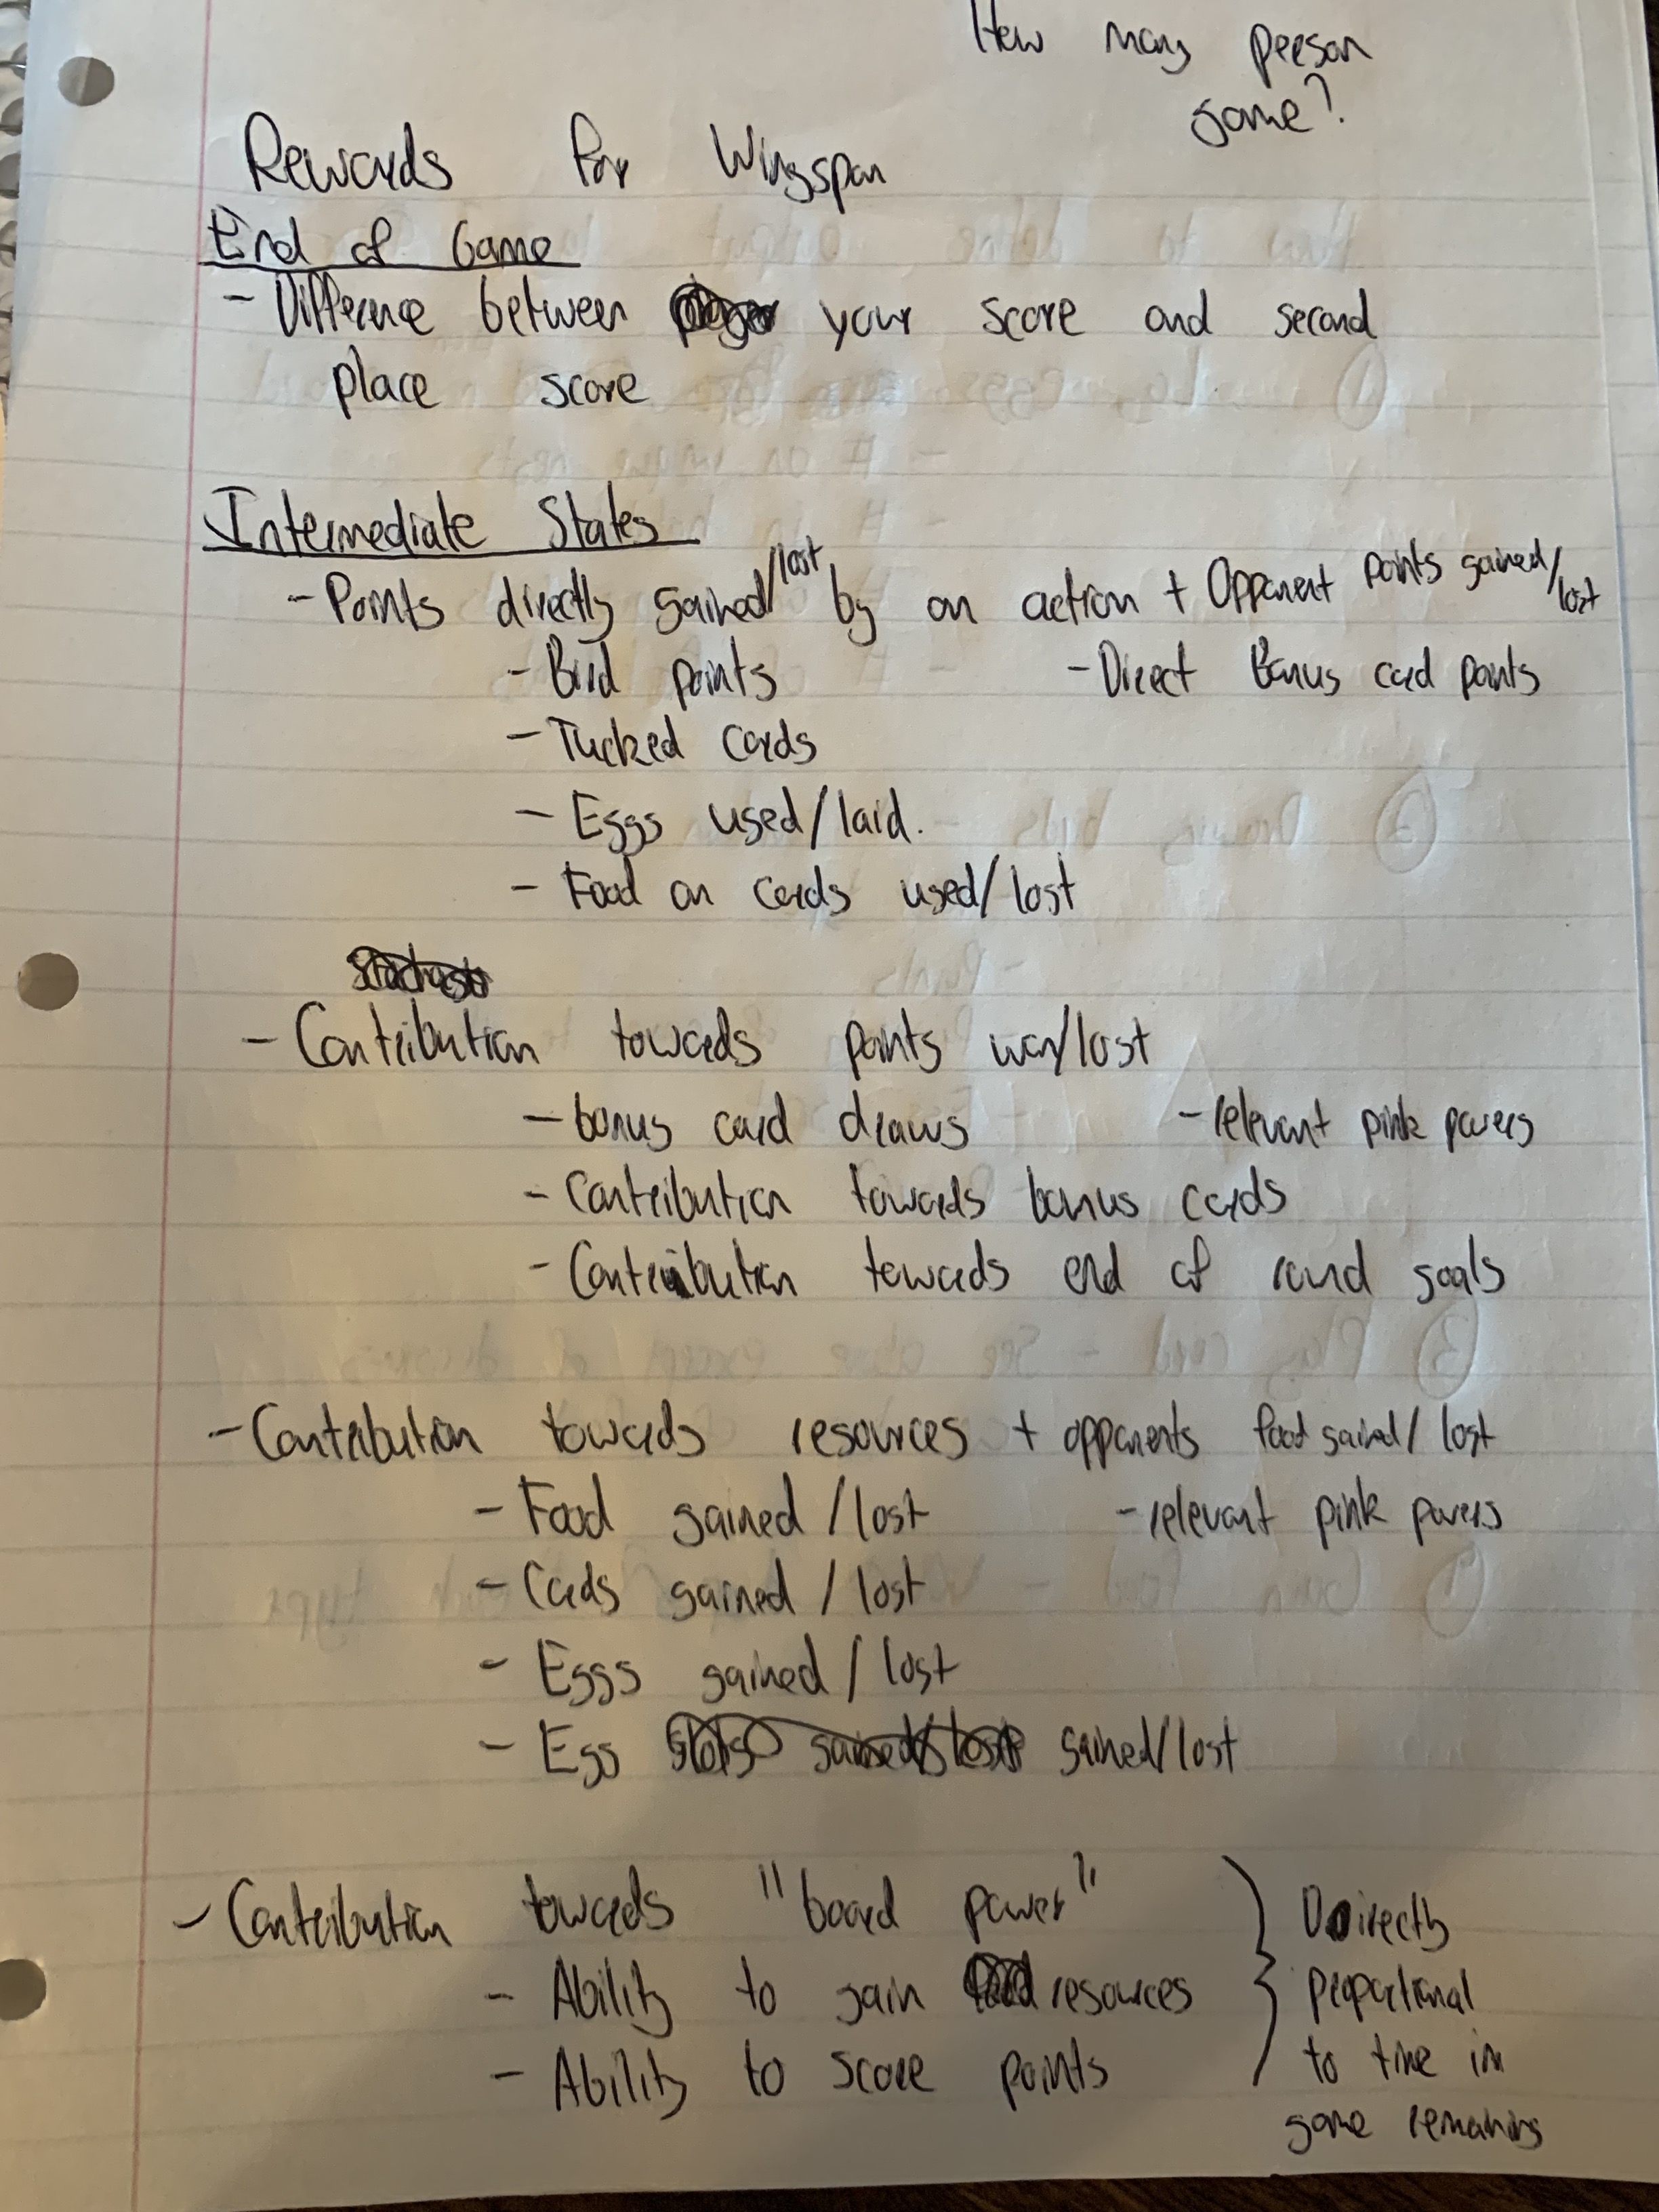 How many person
game?
Rewards for Wingspan
End of Game
- Difference between your score and second
place score
Intermediate States
- Points directly gained/lost by an action + Opponent points gained/lost
- Bird points - Direct Bonus card points
- Tucked cards
- Eggs used/laid.
- Food on cards used/lost
- Contribution towards points won/lost
- bonus card draws - relevant pink powers
- Contribution towards bonus cards
- Contribution towards end of round goals
- Contribution towards resources + opponents food gained/lost
- Food gained/lost - relevant pink powers
- Cards gained/lost
- Eggs gained/lost
- Egg slots gained/lost gained/lost
- Contribution towards "board power"
- Ability to gain resources
- Ability to score points
Directly
proportional
to time in
game remaining